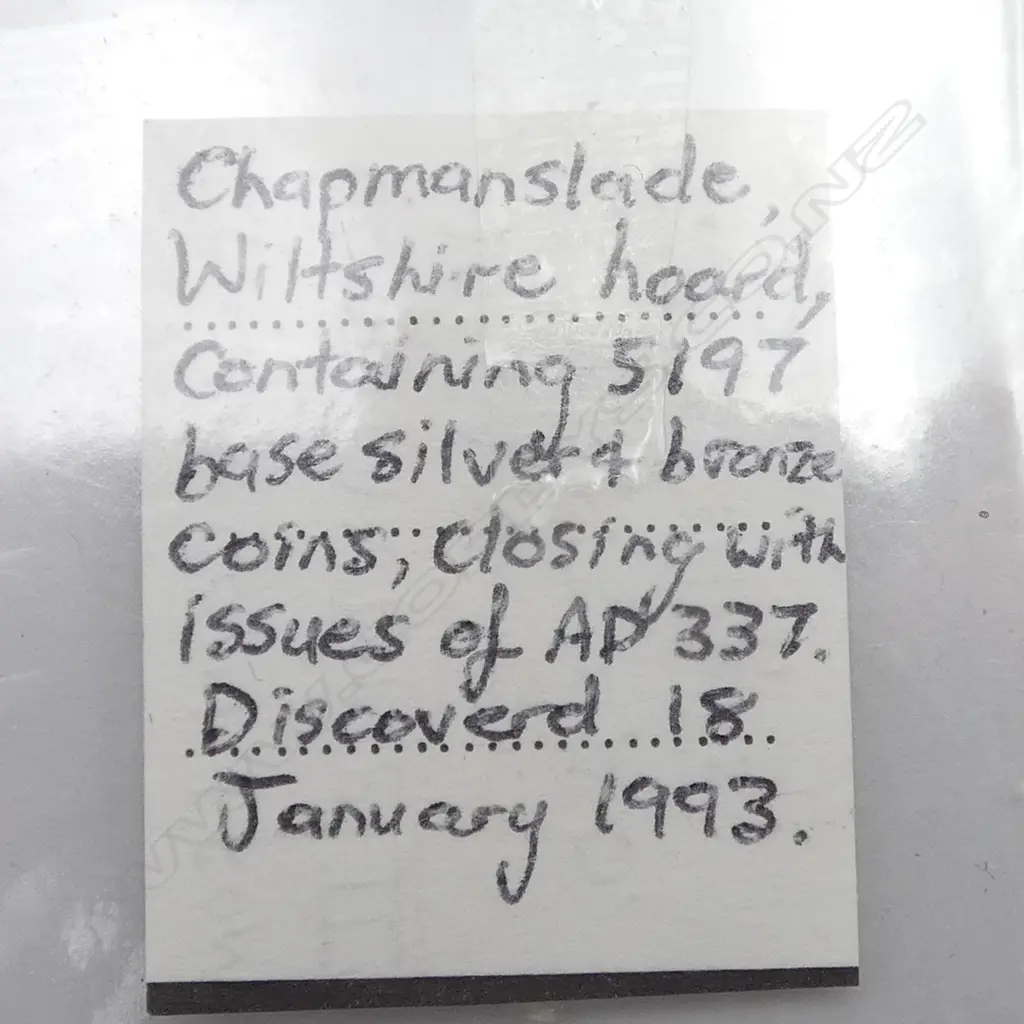 Chapmanslade,
Wiltshire hoard,
Containing 5197
base silver & bronze
Coins, closing with
issues of AD 337.
Discoverd 18
January 1993.